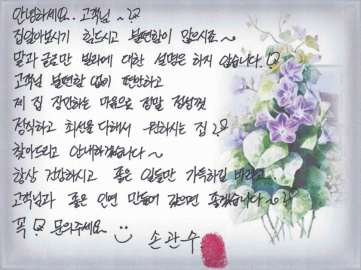 안녕하세요.. 고객님 ~♡
집알아보시기 힘드시고 불편함이 많으시죠~
말과 글로만 빌라에 대한 설명은 하지 않습니다.
고객님 불편함 없이 편안하고
제 집 장만하는 마음으로 정말 정성껏
정직하고 최선을 다해서 원하시는 집
찾아드리고 안내하겠습니다~
항상 건강하시고 좋은 일들만 가득하길 바라고..
고객님과 좋은 인연 만들어 갔으면 좋겠습니다~
꼭 문의주세요~
손관수